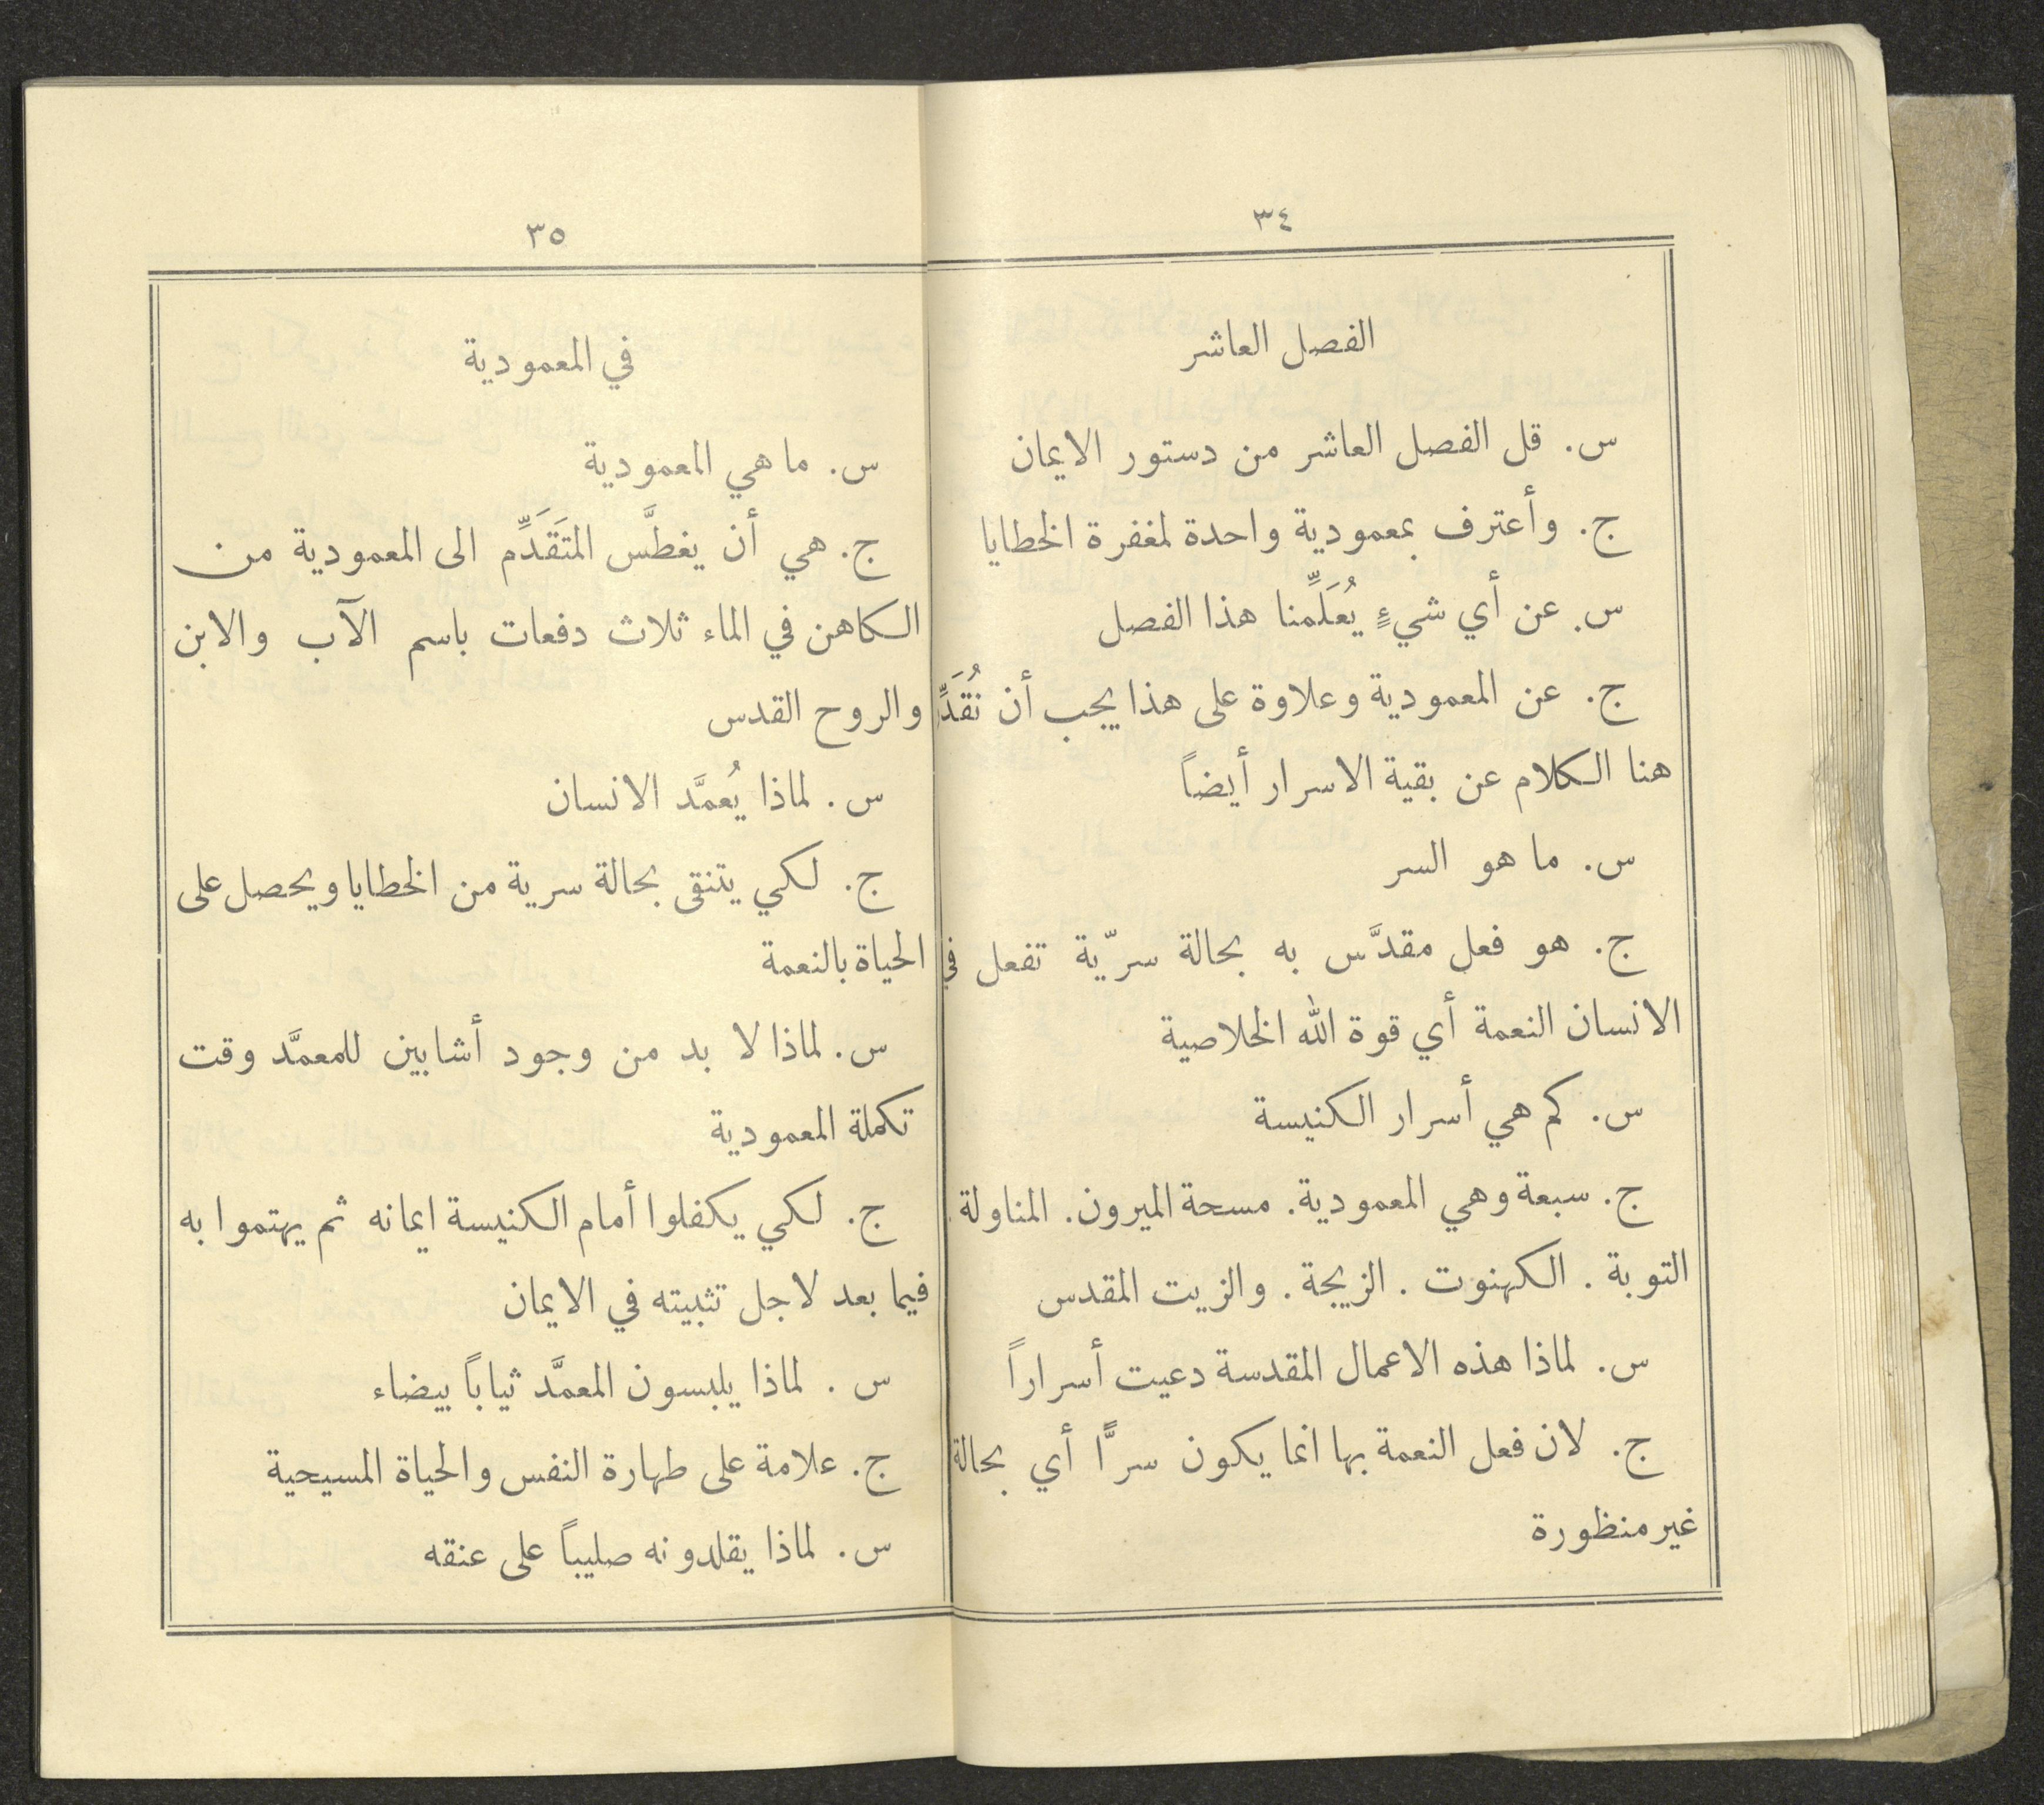 ٣٤
الفصل العاشر
س. قل الفصل العاشر من دستور الايمان
ج. وأعترف بمعمودية واحدة لمغفرة الخطايا
س. عن أي شيءٍ يُعَلِّمنا هذا الفصل
ج. عن المعمودية وعلاوة على هذا يجب أن نُقَدِّم
هنا الكلام عن بقية الاسرار أيضاً
س. ما هو السر
ج. هو فعل مقدَّس به بحالة سرّية تفعل في
الانسان النعمة أي قوة الله الخلاصية
س. كم هي أسرار الكنيسة
ج. سبعة وهي المعمودية. مسحة الميرون. المناولة.
التوبة. الكهنوت. الزيجة. والزيت المقدس
س. لماذا هذه الاعمال المقدسة دعيت أسراراً
ج. لان فعل النعمة بها انما يكون سرًّا أي بحالة
غير منظورة
٣٥
في المعمودية
س. ما هي المعمودية
ج. هي أن يغطَّس المتَقَدِّم الى المعمودية من
الكاهن في الماء ثلاث دفعات باسم الآب والابن
والروح القدس
س. لماذا يُعمَّد الانسان
ج. لكي يتنقى بحالة سرية من الخطايا ويحصل على
الحياة بالنعمة
س. لماذا لا بد من وجود أشابين للمعمَّد وقت
تكملة المعمودية
ج. لكي يكفلوا أمام الكنيسة ايمانه ثم يهتموا به
فيما بعد لاجل تثبيته في الايمان
س. لماذا يلبسون المعمَّد ثياباً بيضاء
ج. علامة على طهارة النفس والحياة المسيحية
س. لماذا يقلدونه صليباً على عنقه